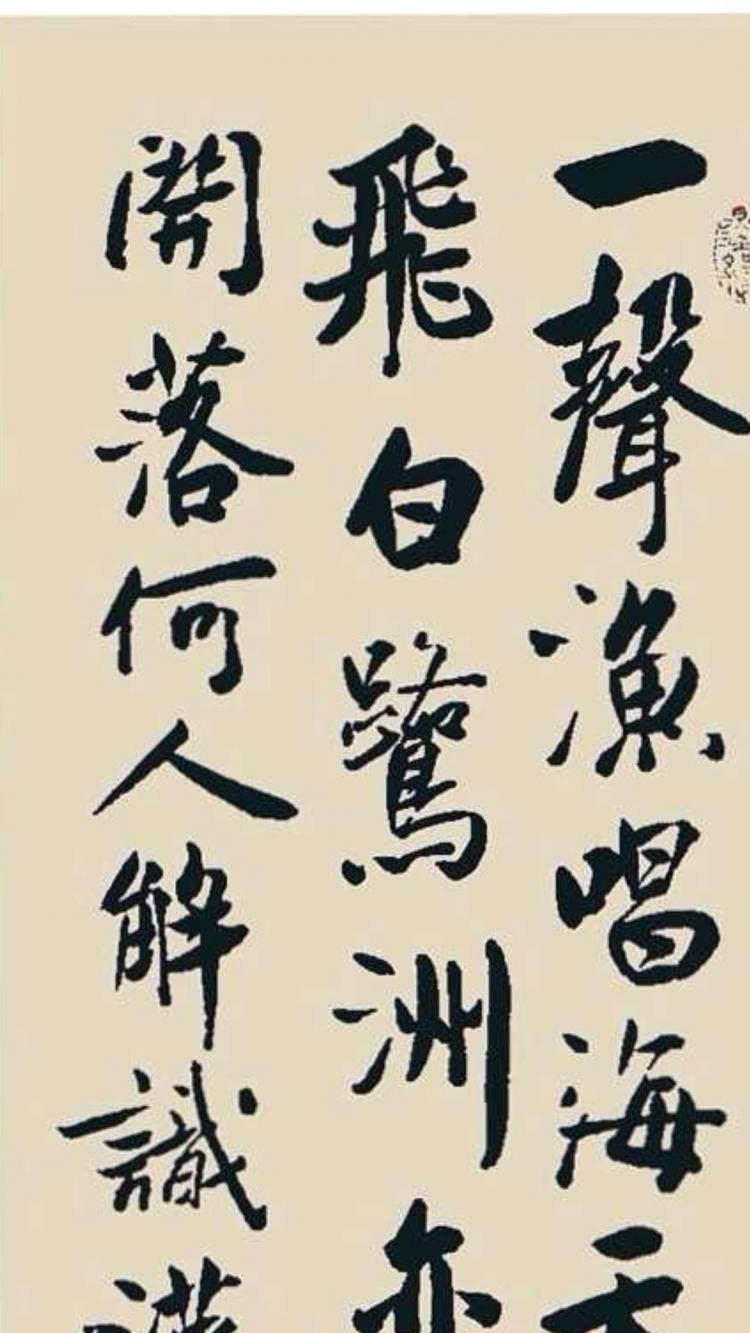 一聲漁唱海天
飛白鷺洲亦
開落何人解識